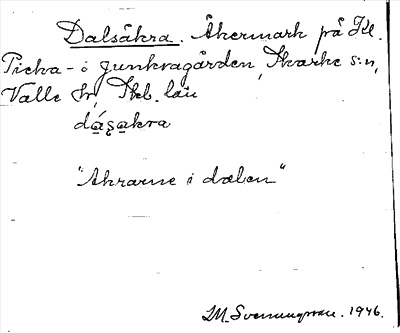 Dalsåkra. Åkermark på Kl.
Picka- o Junkragården, Skarke s:n,
Valle hd, Skb. län
dáʂakra
"Åkrarne i dalen"
M. Svenungsson. 1946.